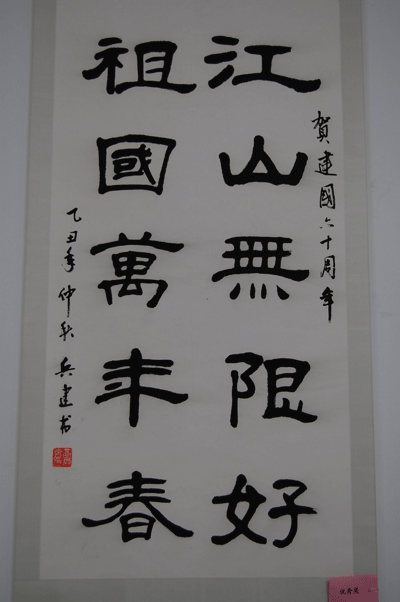 賀建國六十周年
江山無限好
祖國萬年春
乙丑年仲秋兵建书